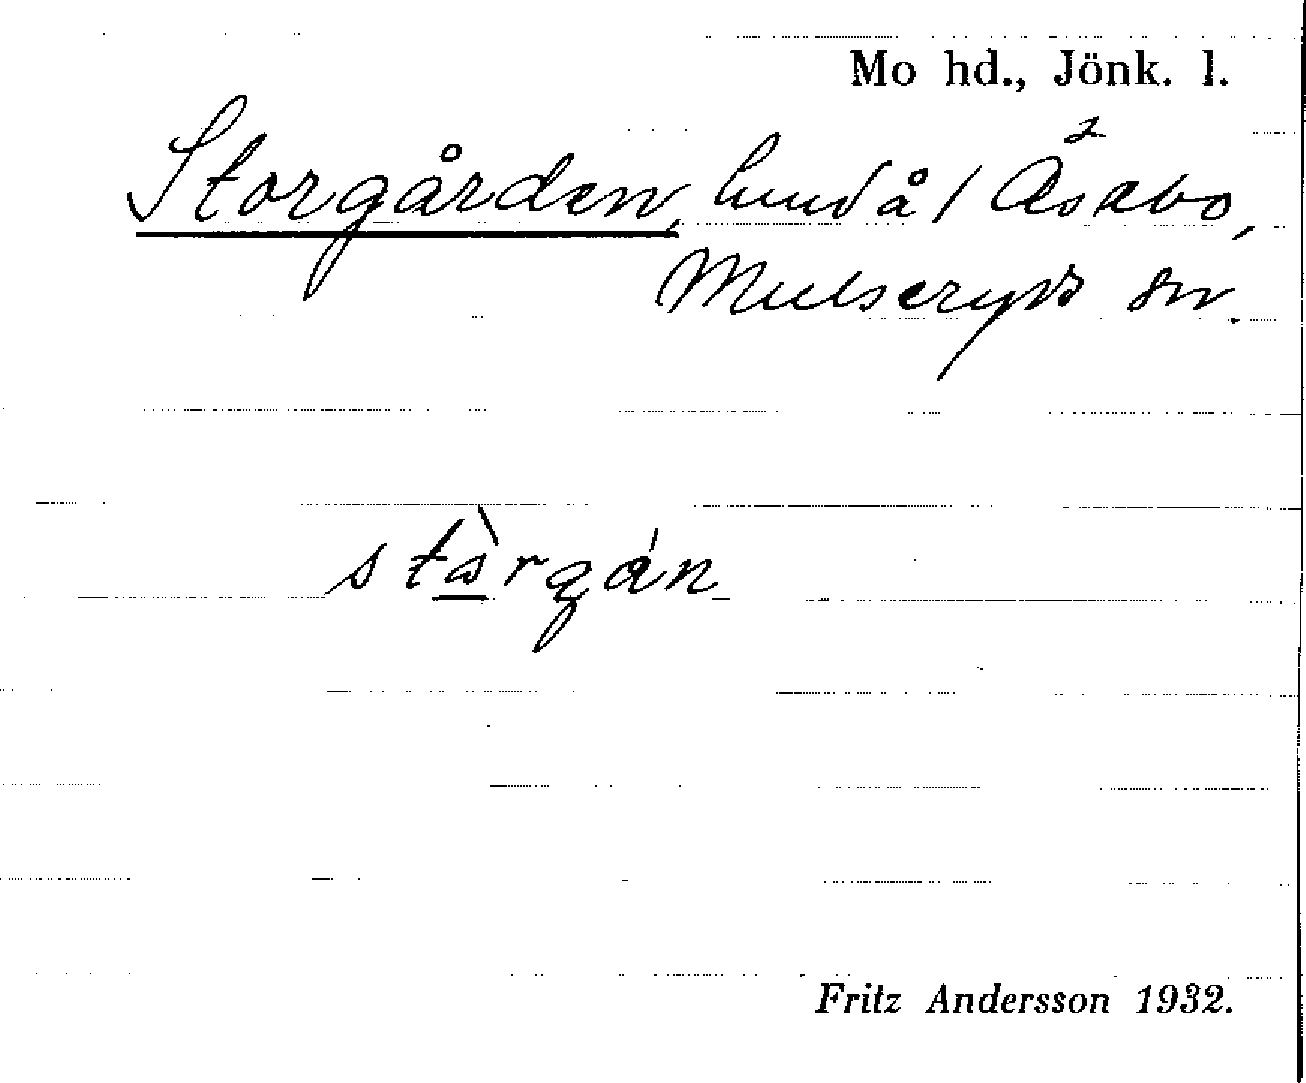 Mo hd., Jönk. l.
Storgården, hmd å 1 Åsabo,
Mulseryds sn.
stàrgán
Fritz Andersson 1932.